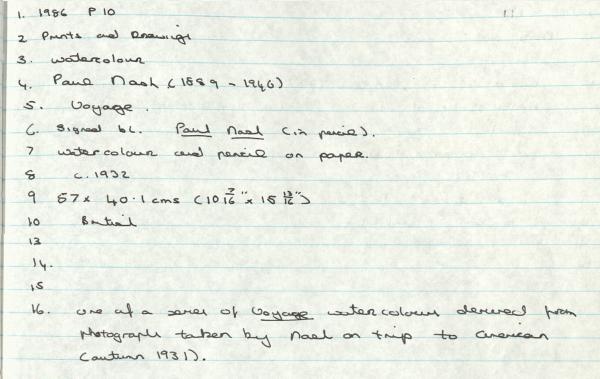 1. 1986 P 10
2 Prints and Drawings
3. watercolour
4. Paul Nash (1889 - 1946)
5. Voyage.
6. Signed bl. Paul Nash (in pencil).
7 watercolour and pencil on paper.
8 c. 1932
9 57 x 40.1 cms (10 7/16" x 15 13/16")
10 British
13
14.
15
16. one of a series of Voyage watercolours derived from
photographs taken by Nash on trip to American
(autumn 1931).